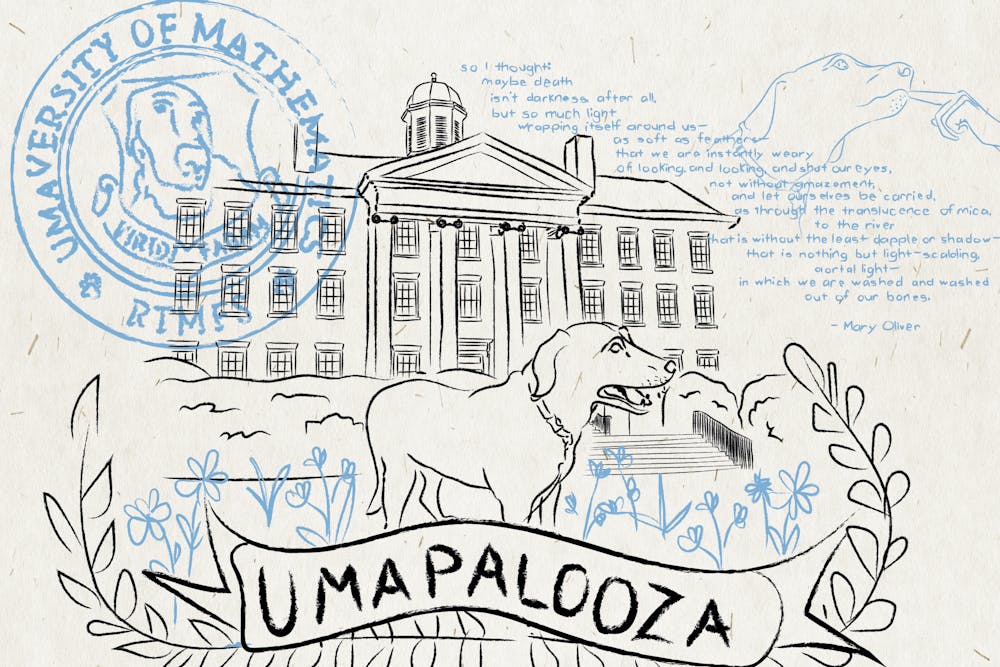 UMAVERSITY OF MATHEMATICS
RTMPS
so I thought:
maybe death
isn't darkness after all,
but so much light
wrapping itself around us—
as soft as feathers—
that we are instantly weary
of looking, and looking, and shut our eyes,
not without amazement,
and let ourselves be carried,
as through the translucence of mica,
to the river
that is without the least dapple or shadow—
that is nothing but light—scalding,
aortal light—
in which we are washed and washed
out of our bones.
- Mary Oliver
UMAPALOOZA